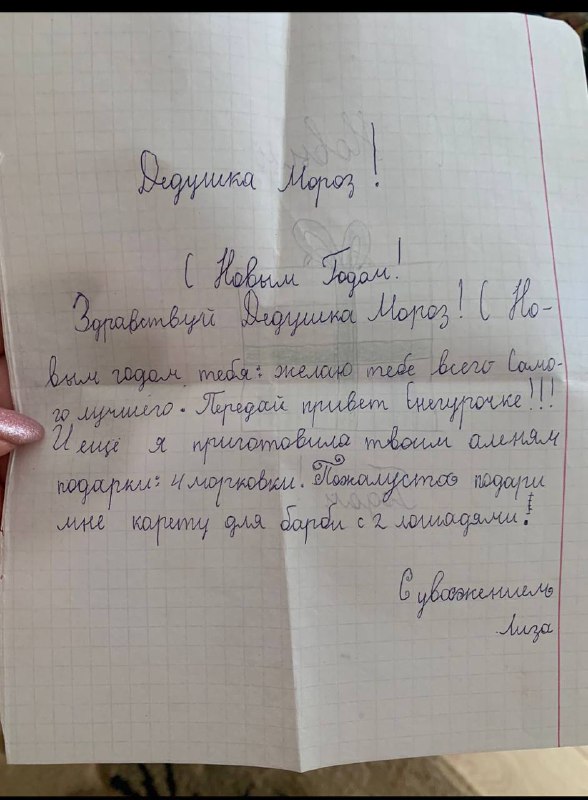 Дедушка Мороз!
С Новым Годом!
Здравствуй Дедушка Мороз! С Но-
вым годом тебя: желаю тебе всего Само-
го лучшего. Передай привет Снегурочке!!!
И ещё я приготовила твоим аленям
подарки: 4 морковки! Пожалуста подари
мне карету для барби с 2 лошадями!
С уважением
Лиза